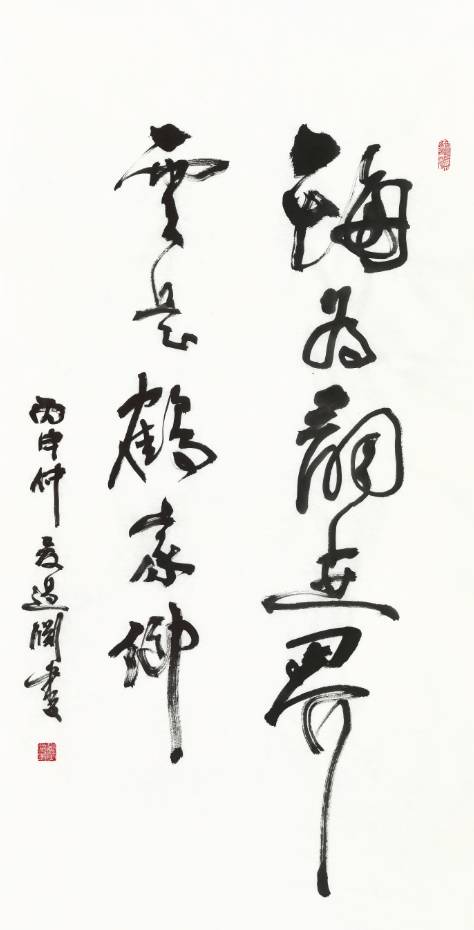 海為龍世界
雲是鶴家鄉
丙申仲夏書